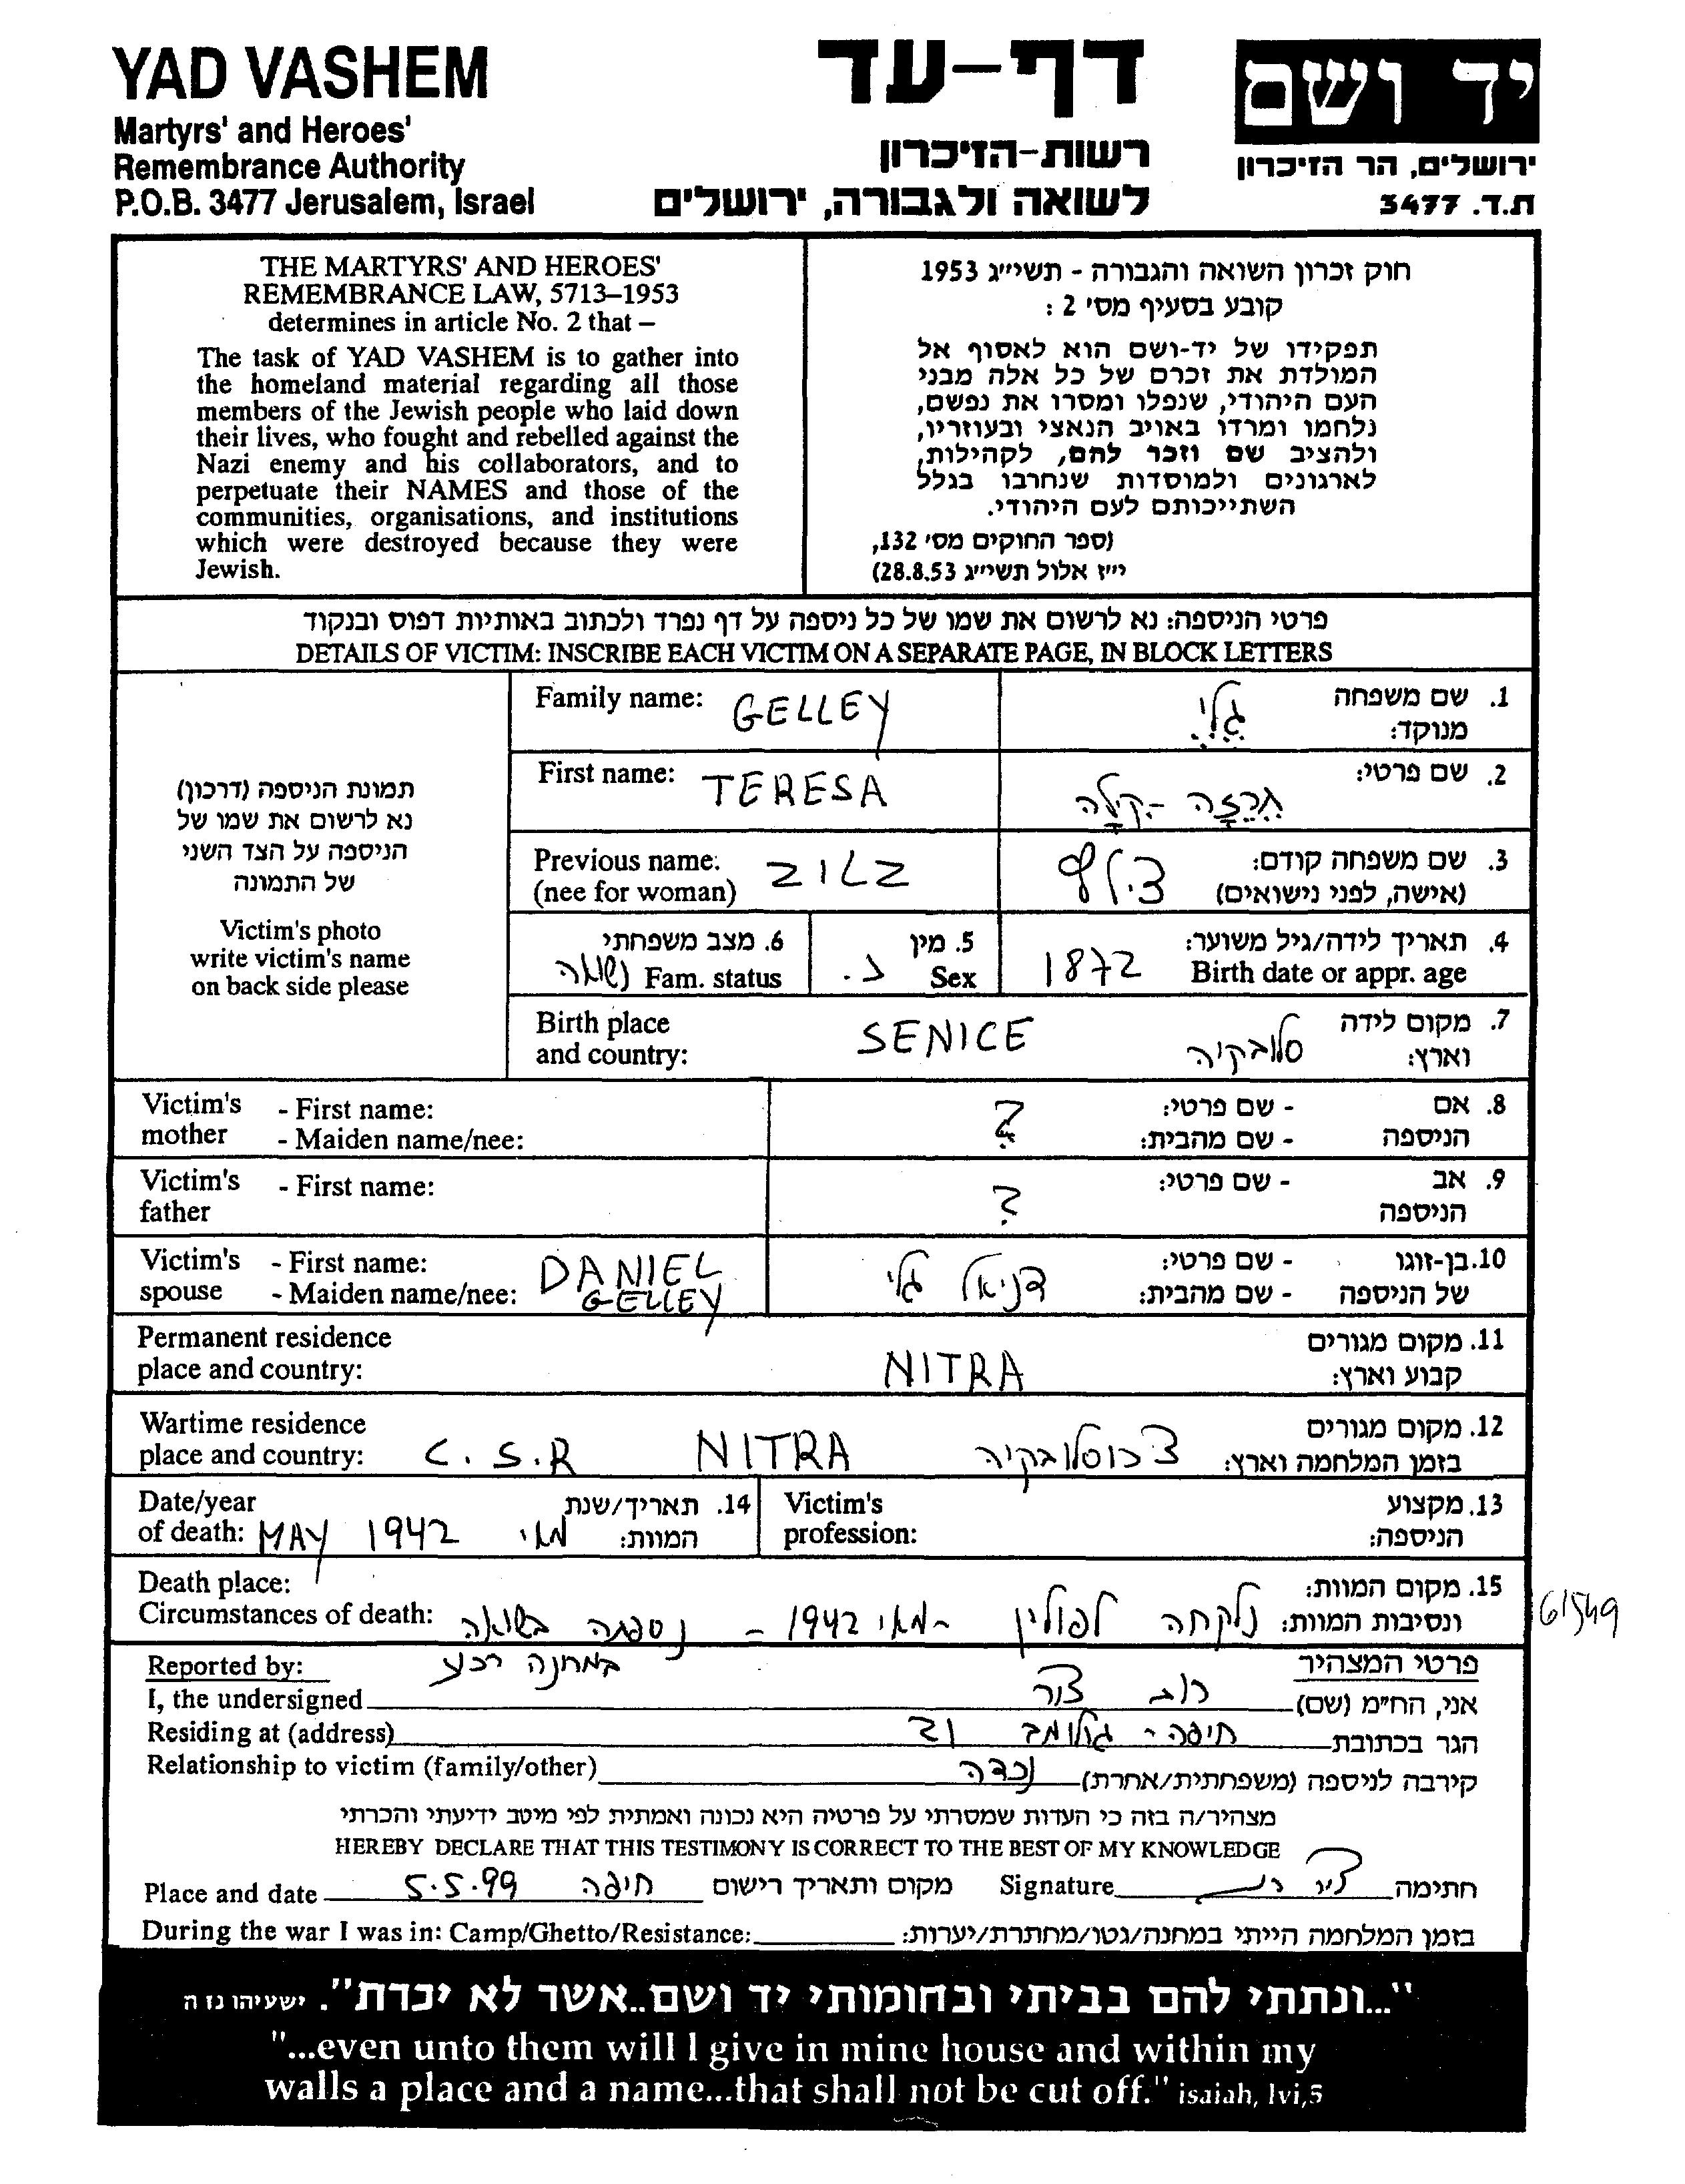 YAD VASHEM
Martyrs' and Heroes'
Remembrance Authority
P.O.B. 3477 Jerusalem, Israel
דף-עד
רשות-הזיכרון
לשואה ולגבורה, ירושלים
יד ושם
ירושלים, הר הזיכרון
ת.ד. 3477
THE MARTYRS' AND HEROES'
REMEMBRANCE LAW, 5713–1953
determines in article No. 2 that –
The task of YAD VASHEM is to gather into
the homeland material regarding all those
members of the Jewish people who laid down
their lives, who fought and rebelled against the
Nazi enemy and his collaborators, and to
perpetuate their NAMES and those of the
communities, organisations, and institutions
which were destroyed because they were
Jewish.
חוק זכרון השואה והגבורה - תשי״ג 1953
קובע בסעיף מס' 2 :
תפקידו של יד-ושם הוא לאסוף אל
המולדת את זכרם של כל אלה מבני
העם היהודי, שנפלו ומסרו את נפשם,
נלחמו ומרדו באויב הנאצי ובעוזריו,
ולהציב שם וזכר להם, לקהילות,
לארגונים ולמוסדות שנחרבו בגלל
השתייכותם לעם היהודי.
(ספר החוקים מס' 132,
י״ז אלול תשי״ג 28.8.53)
פרטי הניספה: נא לרשום את שמו של כל ניספה על דף נפרד ולכתוב באותיות דפוס ובנקוד
DETAILS OF VICTIM: INSCRIBE EACH VICTIM ON A SEPARATE PAGE, IN BLOCK LETTERS
תמונת הניספה (דרכון)
נא לרשום את שמו של
הניספה על הצד השני
של התמונה
Victim's photo
write victim's name
on back side please
Family name: GELLEY גלי 1. שם משפחה
מנוקד:
First name: TERESA תרזה - קילה 2. שם פרטי:
Previous name: ZILZ צילץ 3. שם משפחה קודם:
(nee for woman) (אישה, לפני נישואים)
6. מצב משפחתי 5. מין 4. תאריך לידה/גיל משוער:
נשואה Fam. status נ. Sex 1872 Birth date or appr. age
Birth place SENICE סלובקיה 7. מקום לידה
and country: וארץ:
Victim's - First name: ? - שם פרטי: 8. אם
mother - Maiden name/nee: - שם מהבית: הניספה
Victim's - First name: ? - שם פרטי: 9. אב
father הניספה
Victim's - First name: DANIEL דניאל גלי - שם פרטי: 10. בן-זוגו
spouse - Maiden name/nee: GELLEY - שם מהבית: של הניספה
Permanent residence 11. מקום מגורים
place and country: NITRA קבוע וארץ:
Wartime residence 12. מקום מגורים
place and country: C.S.R NITRA צ'כוסלובקיה בזמן המלחמה וארץ:
Date/year 14. תאריך/שנת Victim's 13. מקצוע
of death: MAY 1942 מאי המוות: profession: הניספה:
Death place: 15. מקום המוות:
Circumstances of death: נלקחה לפולין -מאי 1942 - נספתה בשואה ונסיבות המוות:
61549
Reported by: פרטי המצהיר
I, the undersigned צור אני, הח״מ (שם)
Residing at (address) חיפה - גולומב 21 הגר בכתובת
Relationship to victim (family/other) נכדה קירבה לניספה (משפחתית/אחרת)
מצהיר/ה בזה כי העדות שמסרתי על פרטיה היא נכונה ואמתית לפי מיטב ידיעתי והכרתי
HEREBY DECLARE THAT THIS TESTIMONY IS CORRECT TO THE BEST OF MY KNOWLEDGE
Place and date 5.5.99 חיפה מקום ותאריך רישום Signature חתימה
During the war I was in: Camp/Ghetto/Resistance: בזמן המלחמה הייתי במחנה/גטו/מחתרת/יערות:
"...ונתתי להם בביתי ובחומותי יד ושם..אשר לא יכרת". ישעיהו נו ה
"...even unto them will I give in mine house and within my
walls a place and a name...that shall not be cut off." isaiah, lvi,5